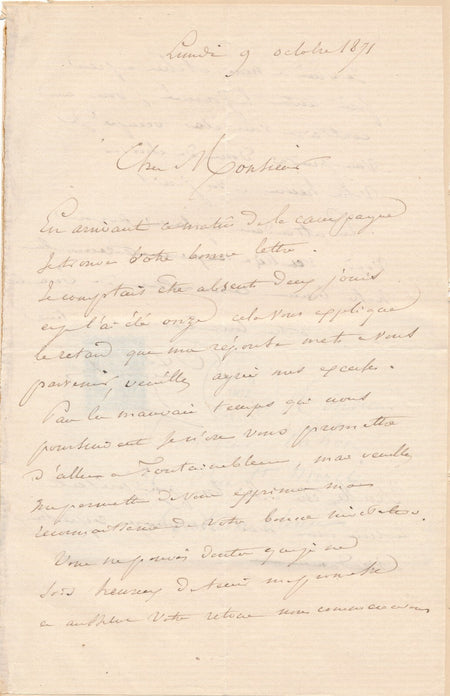 Lundi 9 octobre 1871
Cher Monsieur
En arrivant ce matin de la campagne
Je trouve votre bonne lettre.
Je comptais être absent deux jours
et je l'ai été onze cela vous explique
le retard que ma réponse met a vous
parvenir, veuillez agréer mes excuses.
Par le mauvais temps qui nous
poursuivent je n'ose vous promettre
d'aller a Fontainebleau, mais veuillez
me permettre de vous exprimer ma
reconnaissance de votre bonne invitation.
Vous ne pouvez douter que je ne
sois heureux
a votre retour nous commencerons